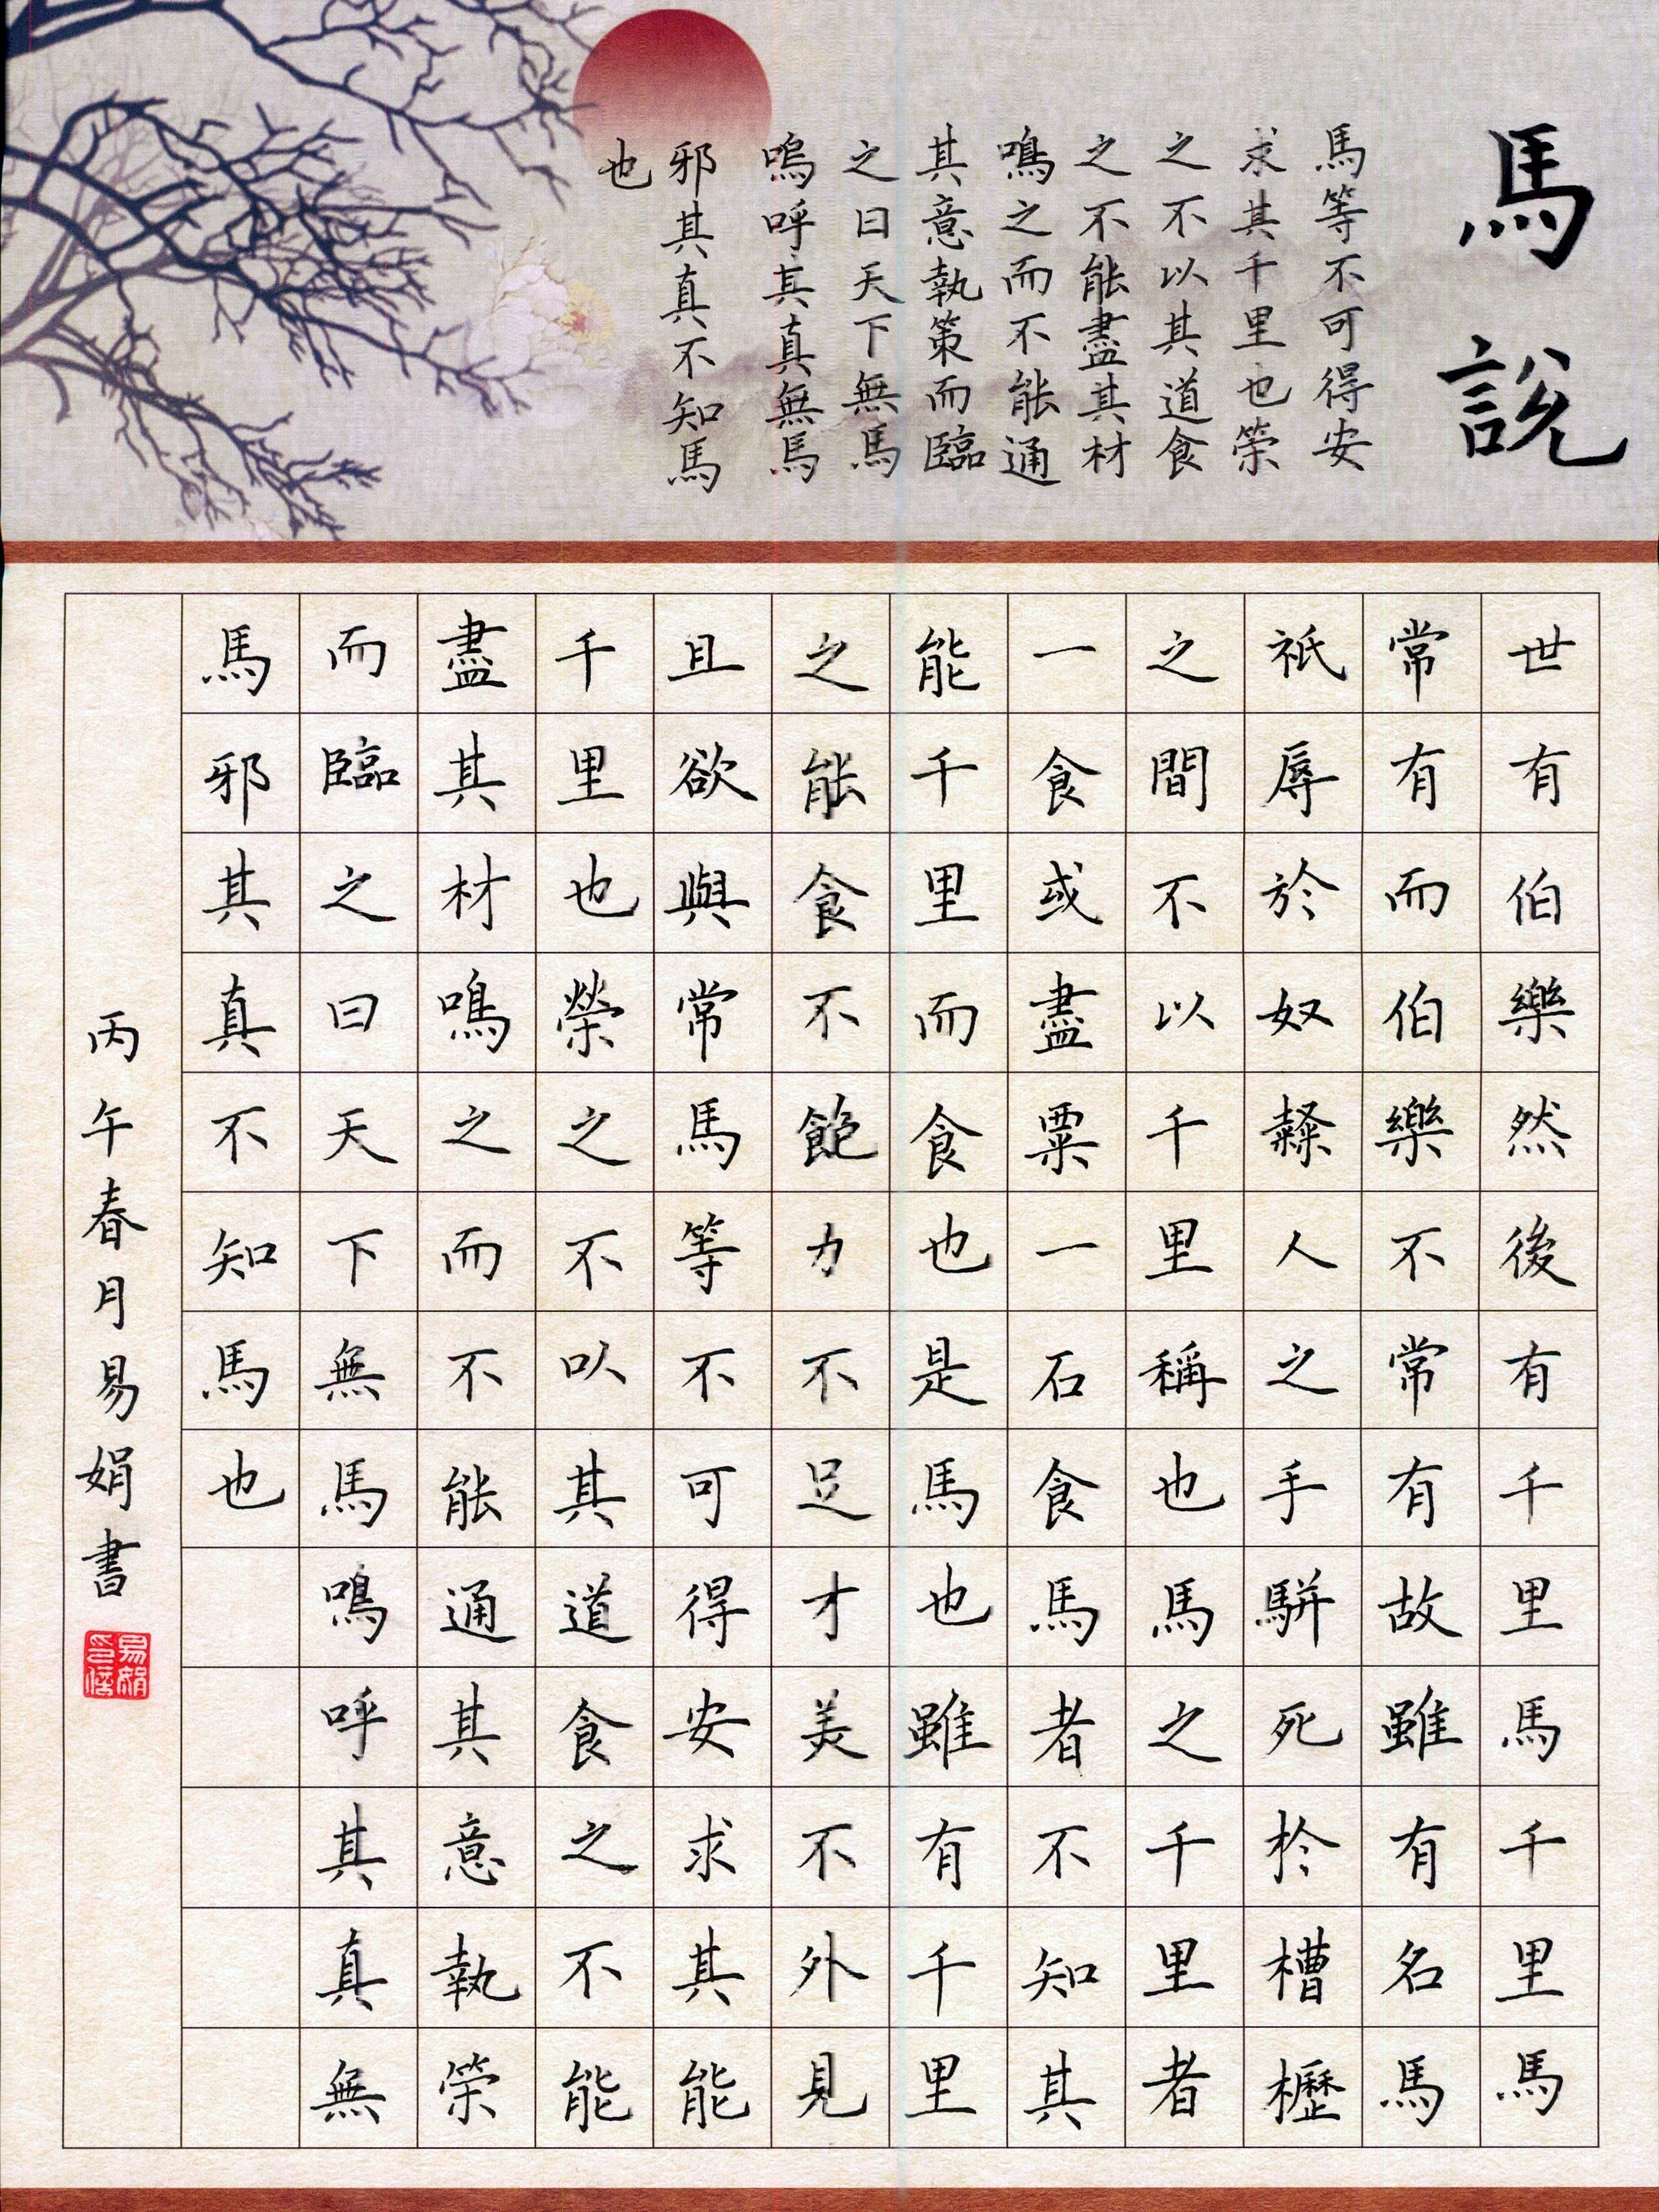 馬說
馬等不可得安
求其千里也荣
之不以其道食
之不能盡其材
鳴之而不能通
其意執策而臨
之曰天下無馬
嗚呼其真無馬
邪其真不知馬
也
世有伯樂然後有千里馬千里馬
常有而伯樂不常有故雖有名馬
祇辱於奴隸人之手駢死於槽櫪
之間不以千里稱也馬之千里者
一食或盡粟一石食馬者不知其
能千里而食也是馬也雖有千里
之能食不飽力不足才美不外見
且欲與常馬等不可得安求其能
千里也榮之不以其道食之不能
盡其材鳴之而不能通其意執荣
而臨之曰天下無馬鳴呼其真無
馬邪其真不知馬也
丙午春月易娟書
易娟印信